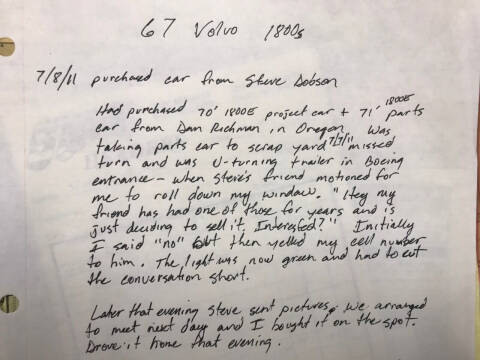 67 Volvo 1800s
7/8/11 purchased car from Steve Dobson
Had purchased 70' 1800E project car + 71' 1800E parts
car from Dan Richman in Oregon. Was
taking parts car to scrap yard 7/7/11 missed
turn and was U-turning trailer in Boeing
entrance - when Steve's friend motioned for
me to roll down my window. "Hey my
friend has had one of those for years and is
just deciding to sell it. Interested?" Initially
I said "no" but then yelled my cell number
to him. The light was now green and had to cut
the conversation short.
Later that evening Steve sent pictures, we arranged
to meet next day and I bought it on the spot.
Drove it home that evening.